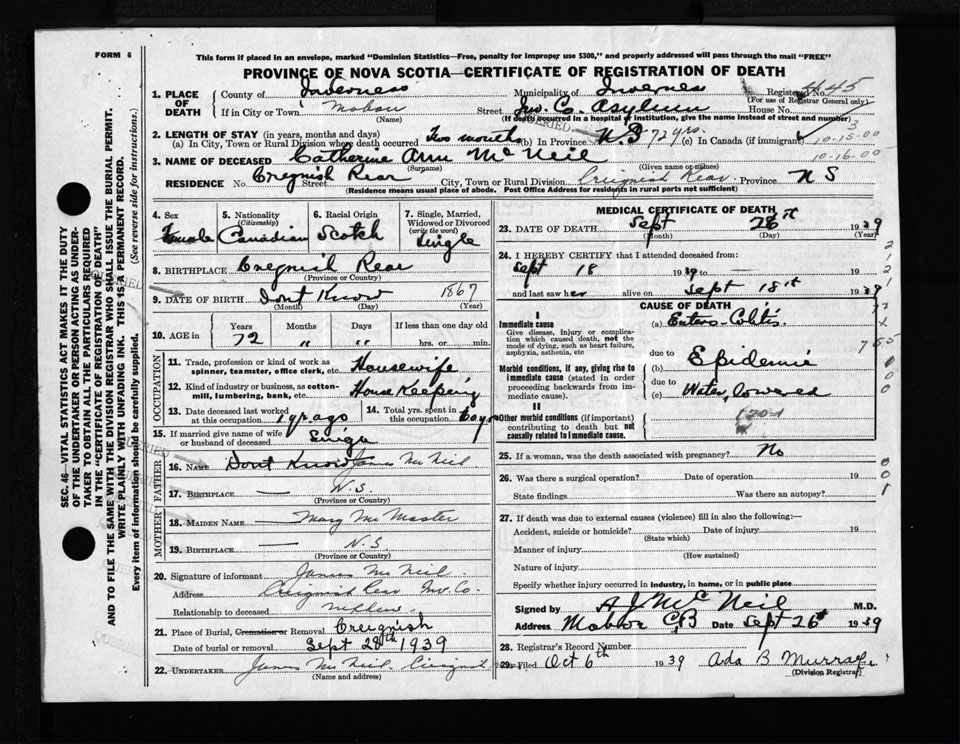 FORM 6
This form if placed in an envelope, marked "Dominion Statistics—Free, penalty for improper use $300," and properly addressed will pass through the mail "FREE"
PROVINCE OF NOVA SCOTIA—CERTIFICATE OF REGISTRATION OF DEATH
1. PLACE OF DEATH County of Inverness Municipality of Inverness Registered No. 45
(For use of Registrar General only)
If in City or Town Mabou Street Inv. Co. Asylum House No.
(Name) (If death occurred in a hospital or institution, give the name instead of street and number)
2. LENGTH OF STAY (in years, months and days)
(a) In City, Town or Rural Division where death occurred Two months (b) In Province N.S 72 yrs. (c) In Canada (if immigrant)
10-15-00
10-16-00
3. NAME OF DECEASED Catherine Ann Mc Neil
(Surname) (Given name or names)
RESIDENCE No. Cregnish Rear Street City, Town or Rural Division Creignish Rear Province N S
(Residence means usual place of abode. Post Office Address for residents in rural parts not sufficient)
4. Sex Female
5. Nationality (Citizenship) Canadian
6. Racial Origin Scotch
7. Single, Married, Widowed or Divorced (write the word) Single
8. BIRTHPLACE Cregnish Rear
(Province or Country)
9. DATE OF BIRTH Dont Know 1867
(Month) (Day) (Year)
10. AGE in Years 72 Months " Days " If less than one day old
hrs. or min.
OCCUPATION
11. Trade, profession or kind of work as spinner, teamster, office clerk, etc. Housewife
12. Kind of industry or business, as cotton-mill, lumbering, bank, etc. House Keeping
13. Date deceased last worked at this occupation 1 yr. ago
14. Total yrs. spent in this occupation 60 yrs
15. If married give name of wife or husband of deceased Single
FATHER
16. NAME Dont Know James Mc Neil
17. BIRTHPLACE — N.S.
(Province or Country)
MOTHER
18. MAIDEN NAME Mary Mc Master
19. BIRTHPLACE — N.S.
(Province or Country)
20. Signature of informant James Mc Neil
Address Creignish Rear Inv. Co.
Relationship to deceased nephew
21. Place of Burial, Cremation or Removal Creignish
Date of burial or removal Sept 28th 1939
22. UNDERTAKER James Mc Neil Creignish
(Name and address)
MEDICAL CERTIFICATE OF DEATH
23. DATE OF DEATH Sept 26th 1939
(Month) (Day) (Year)
24. I HEREBY CERTIFY that I attended deceased from:
Sept 18 1939 to — 19
and last saw her alive on Sept 18th 1939
CAUSE OF DEATH
I
Immediate cause
Give disease, injury or complication which caused death, not the mode of dying, such as heart failure, asphyxia, asthenia, etc
(a) Entero-Colitis.
due to
Morbid conditions, if any, giving rise to immediate cause (stated in order proceeding backwards from immediate cause).
(b) Epidemic
due to
(c) Water, lowered
II
Other morbid conditions (if important) contributing to death but not causally related to immediate cause.
25. If a woman, was the death associated with pregnancy? No
26. Was there a surgical operation? Date of operation 19
State findings Was there an autopsy?
27. If death was due to external causes (violence) fill in also the following:—
Accident, suicide or homicide? Date of injury 19
(State which)
Manner of injury
(How sustained)
Nature of injury
Specify whether injury occurred in industry, in home, or in public place
Signed by A J Mc Neil M.D.
Address Mabou C,B Date Sept 26th 1939
28. Registrar's Record Number
29. Filed Oct 6th 1939 Ada B Murray
(Division Registrar)
SEC. 46—VITAL STATISTICS ACT MAKES IT THE DUTY
OF THE UNDERTAKER OR PERSON ACTING AS UNDER-
TAKER TO OBTAIN ALL THE PARTICULARS REQUIRED
IN THE "CERTIFICATE OF REGISTRATION OF DEATH"
AND TO FILE THE SAME WITH THE DIVISION REGISTRAR WHO SHALL ISSUE THE BURIAL PERMIT.
WRITE PLAINLY WITH UNFADING INK. THIS IS A PERMANENT RECORD.
Every item of information should be carefully supplied. (See reverse side for instructions.)